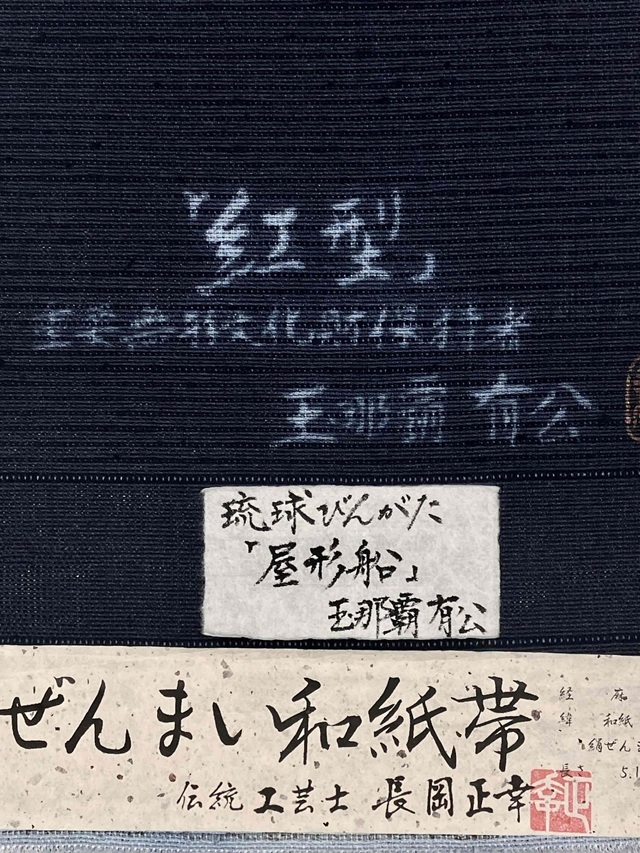 「紅型」
重要無形文化財保持者
玉那覇 有公
琉球びんがた
「屋形船」
玉那覇有公
ぜんまい和紙帯
伝統工芸士 長岡正幸
経 麻
緯 和紙
絹ぜん
長さ 5.1